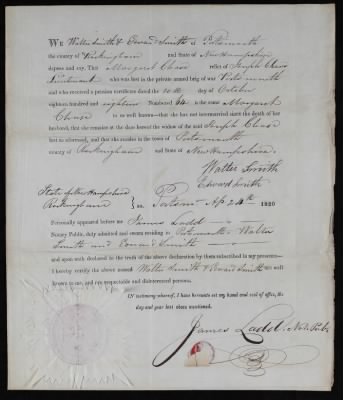 WE Walter Smith & Edward Smith of Portsmouth
the county of Rockingham and State of New Hampshire
depose and say, That Margaret Chase relict of Joseph Chase
Lieutenant who was lost in the private armed brig of war Portsmouth
and who received a pension certificate dated the 20th day of October
eighteen hundred and eighteen Numbered 64 is the same Margaret
Chase so well known—that she has not intermarried since the death of her
husband, that she remains at the date hereof the widow of the said Joseph Chase
lost as aforesaid, and that she resides in the town of Portsmouth
county of Rockingham and State of New Hampshire.
Walter Smith
Edward Smith
State of New Hampshire
Rockingham } ss. Portsmo Ap 24th 1820
Personally appeared before me James Ladd
Notary Public, duly admitted and sworn residing in Portsmouth – Walter
Smith and Edward Smith
and upon oath declared to the truth of the above declaration by them subscribed in my presence—
I hereby certify the above named Walter Smith & Edward Smith are well
known to me, and are respectable and disinterested persons.
IN testimony whereof, I have hereunto set my hand and seal of office, the
day and year last above mentioned.
James Ladd. Not. Pub.